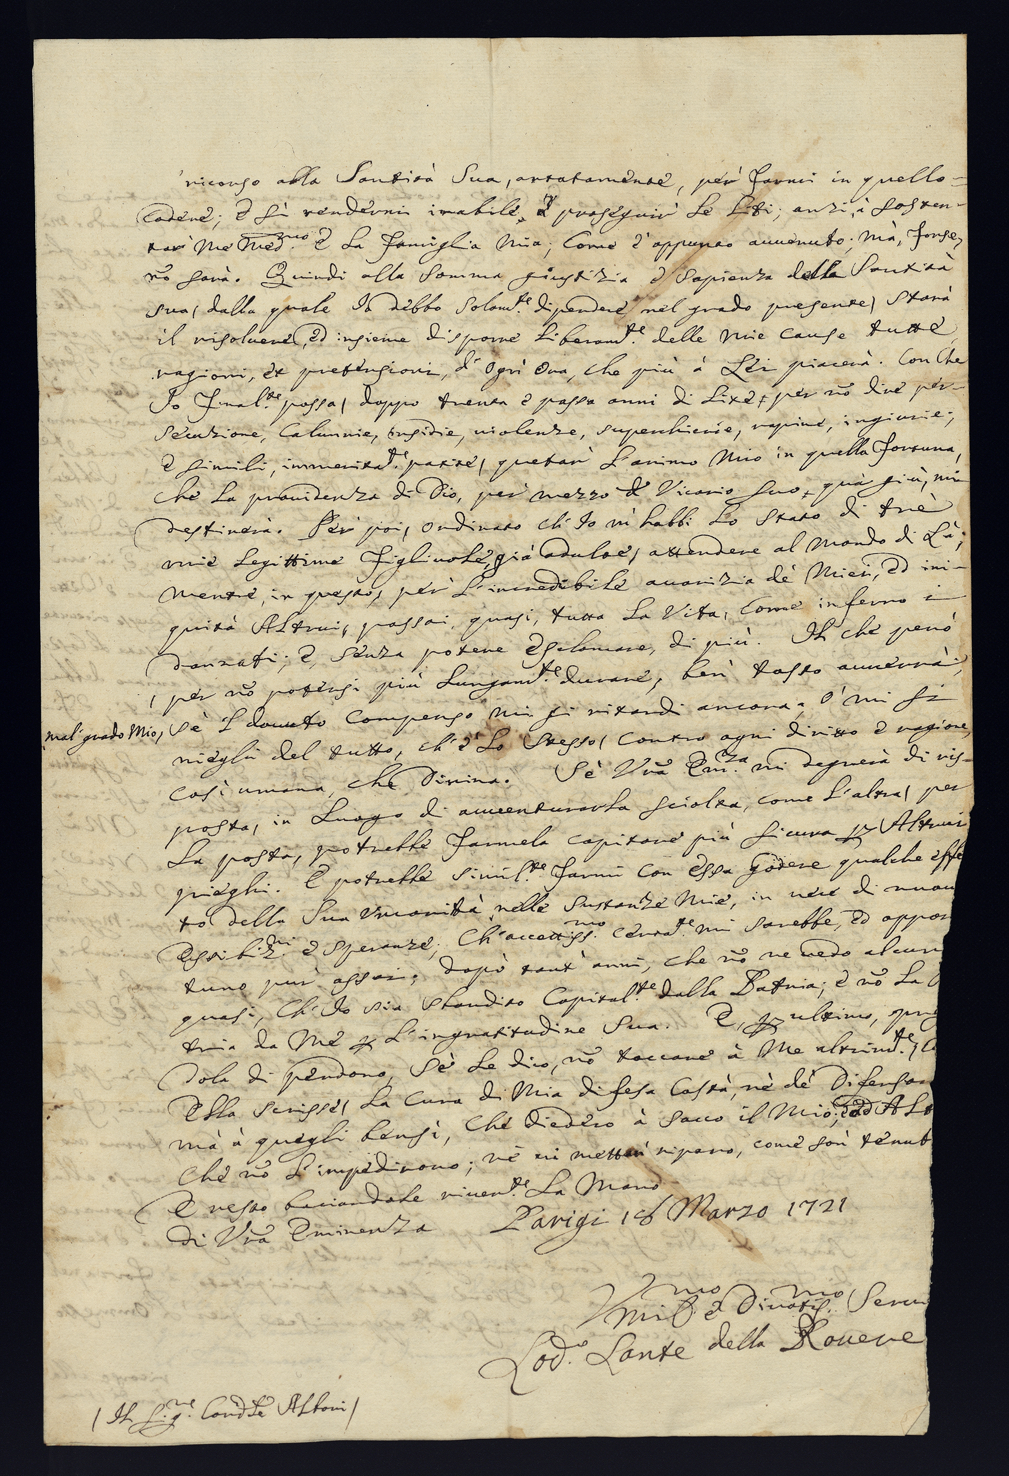 ricorso alla Santità Sua, artatamente, per farmi in quello
cadere; e sì rendermi inabile, à proseguir le Liti; anzi, à sosten-
tar Me Med.mo e La famiglia Mia; Come è appunto auuenuto; mà, forse,
nõ sarà. Quindi alla somma giustizia e sapienza della Santità
sua, dalla quale Io debbo solam.te dipendere nel grado presente, starà
il risoluere, ed insieme disporre Liberam.te delle mie cause tutte,
ragioni, et pretensioni, d' ogni ora, che più à Lei piacerà. Con Che
Io final.te possa, doppo trenta e passa anni di Lite, per nõ dire per-
secuzione, Calunnie, insidie, uiolenze, superchierie, rapine, ingiurie,
e simili, immerita.te patite, quetar L'animo Mio in quella fortuna,
che La prouidenza di Dio, per mezzo d' Vicario suo, quà giù, mi
destinerà. Per poi, ordinato ch' Io m' habbi Lo stato di trè
mie Legittime figliuole, già adulte, attendere al Mondo di Là;
mentre, in questo, per L'incredibile auarizia de' Miei, ed ini-
quità Altrui, passai, quasi, tutta La Vita, Come inferno i
dannati; e, senza potere esclamare, di più. Il che però
, per nõ potersi più Lungam.te durare, ben tosto auuerrà;
mal grado Mio, sè 'l douuto Compenso mi si ritardi ancora; ò mi si
nieghi del tutto, ch' è Lo stesso, contro ogni diritto e ragione,
così umana, che Diuina. Sè Vrã Em.za mi degnerà di ris-
posta, in Luogo di auuenturarla sciolta, come L'altra, per
La posta, potrebbe farmela capitare più sicura Altrui
pieghi. E potrebbe simil.te farmi con essa godere qualche effe
to della Sua umanità nelle sustanze Mie, in uece di nuou
Essibiz.ni e speranze; Ch' accettiss.mo certa.te mi sarebbe, ed oppor
tuno pur assai; dopò tant' anni, che nõ ne uedo alcun
quasi, Ch' Io sia sbandito Capital.te dalla Patria; e nõ La
tria da Me L'ingratitudine Sua. E, ultimo,
dola di perdono, sè Le dico, nõ toccare à Me altrim.te,
Ella scrisse, La cura di Mia difesa Costà, nè de' Difensor
mà à quegli bensì, che diedero à sacco il Mio; ed Alt
che nõ L'impedirono; nè ui metton riparo, come son tenut
E resto baciandole riuer.te La Mano
Di Vrã Eminenza Parigi 18 Marzo 1721
Vmil.mo e Diuotis.mo Seru
Lod.o Lante della Rouere
/ Il Sig.re Card.le Albani /